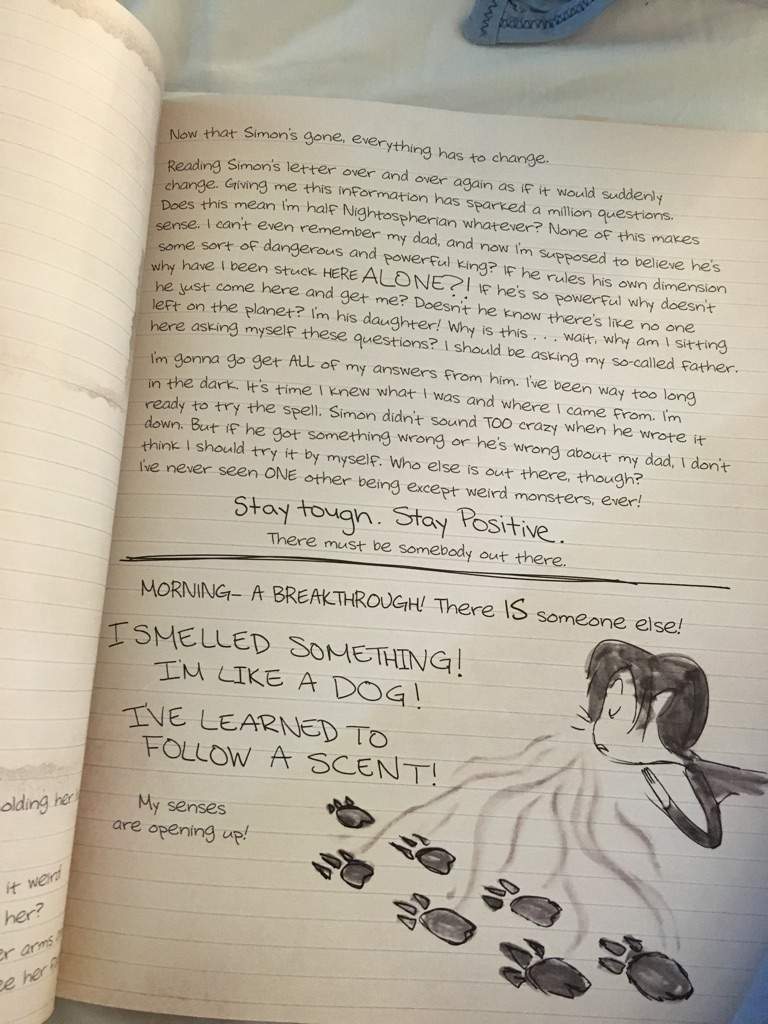 Now that Simon's gone, everything has to change.
Reading Simon's letter over and over again as if it would suddenly
change. Giving me this information has sparked a million questions.
Does this mean I'm half Nightospherian whatever? None of this makes
sense. I can't even remember my dad, and now I'm supposed to believe he's
some sort of dangerous and powerful king? If he rules his own dimension
why have I been stuck HERE ALONE?! If he's so powerful why doesn't
he just come here and get me? Doesn't he know there's like no one
left on the planet? I'm his daughter! Why is this . . . wait, why am I sitting
here asking myself these questions? I should be asking my so-called father.
I'm gonna go get ALL of my answers from him. I've been way too long
in the dark. It's time I knew what I was and where I came from. I'm
ready to try the spell. Simon didn't sound TOO crazy when he wrote it
down. But if he got something wrong or he's wrong about my dad, I don't
think I should try it by myself. Who else is out there, though?
I've never seen ONE other being except weird monsters, ever!
Stay tough. Stay Positive.
There must be somebody out there.
MORNING– A BREAKTHROUGH! There IS someone else!
I SMELLED SOMETHING!
I'M LIKE A DOG!
I'VE LEARNED TO
FOLLOW A SCENT!
My senses
are opening up!
olding her
it weird
her?
er arms
ee her